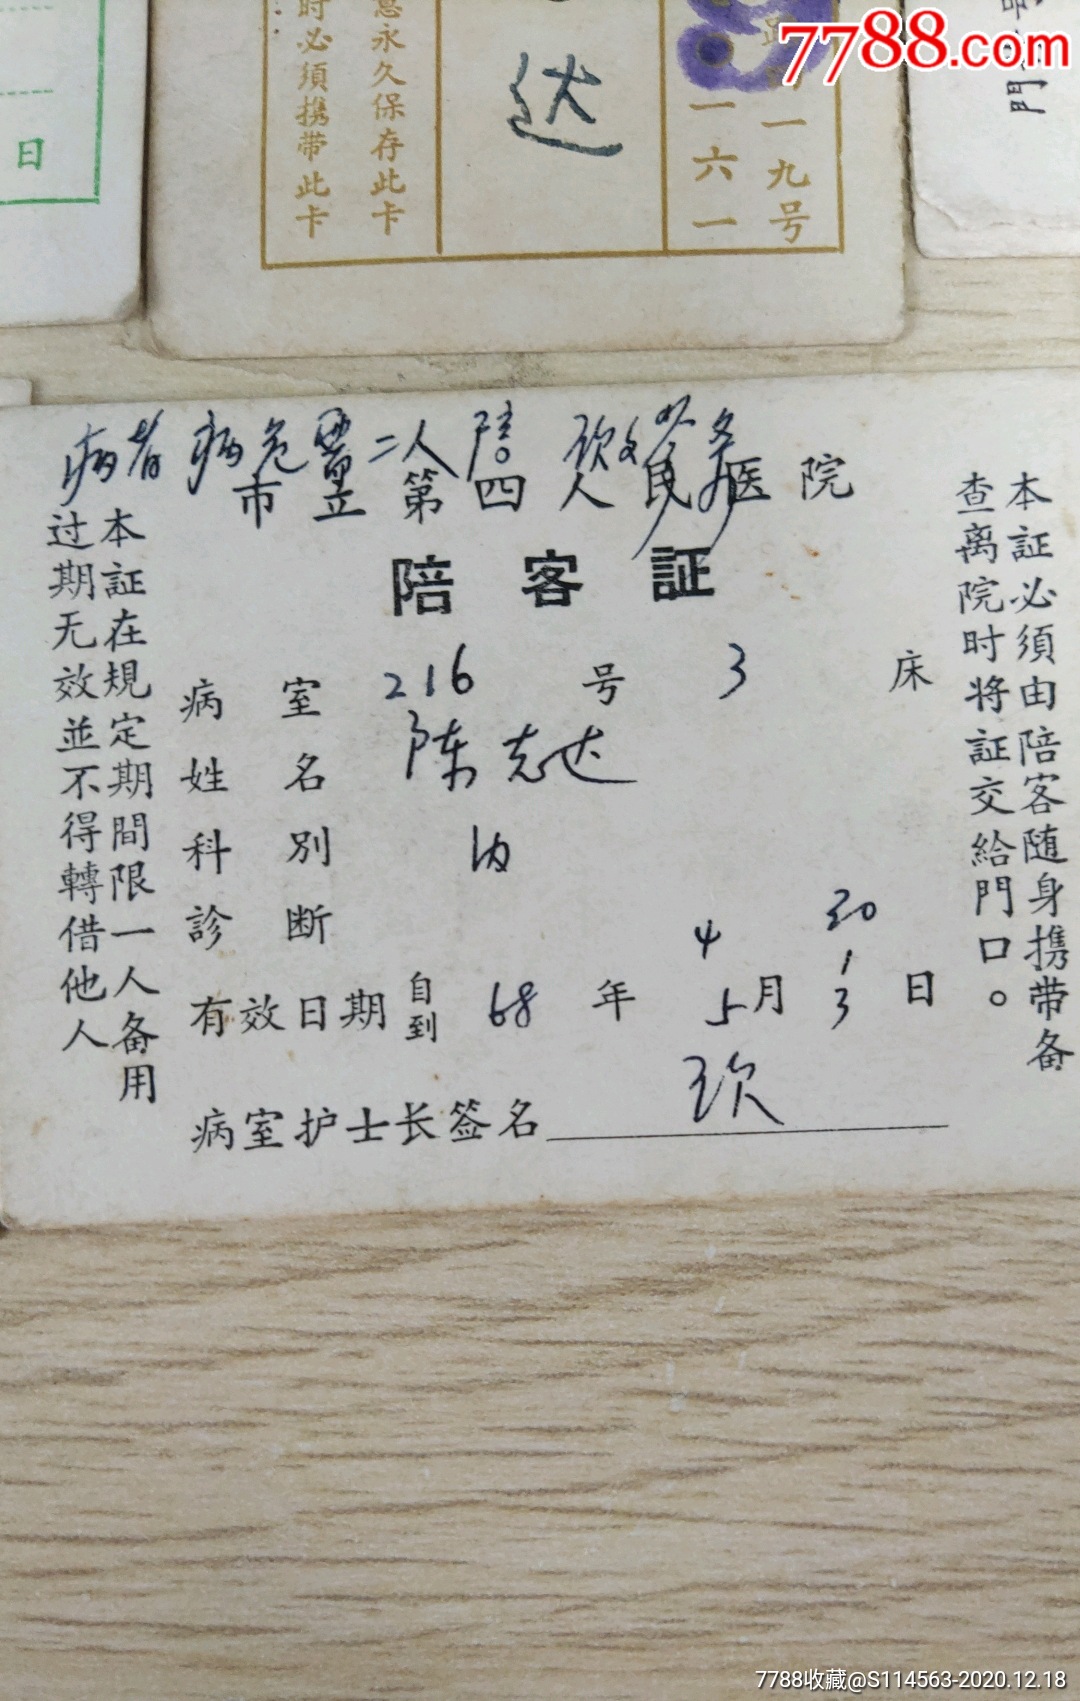 7788.com
日
时必須携带此卡
息永久保存此卡
达
一六一
一九号
門
病者病危需二人陪
市立第四人民医院
陪客証
本証必須由陪客随身携带备
查离院时将証交給門口。
病室 216 号 3 床
姓名 陈志达
科別 内
診断
4 30
有效日期 自到 68 年 5 月 1 3 日
病室护士长签名
本証在規定期間限一人备用
过期无效並不得轉借他人
7788收藏@S114563-2020.12.18